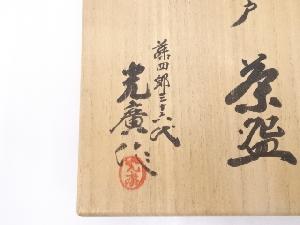 戸
茶盌
藤四郎三十六代
光廣作